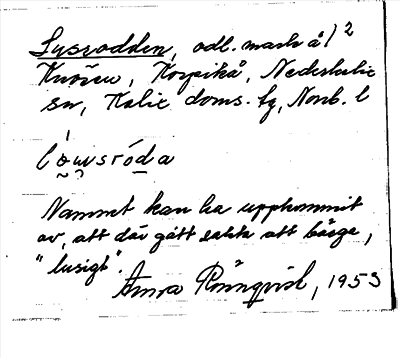 Lusrodden, odl. mark å 1/2
Knösen, Korpikå, Nederkalix
sn, Kalix doms. fg, Norrb. l
l o̰u̯sróda
Namnet kan ha uppkommit
av, att där gått sakta att bärga,
"lusigt".
Anna Rönnqvist, 1953